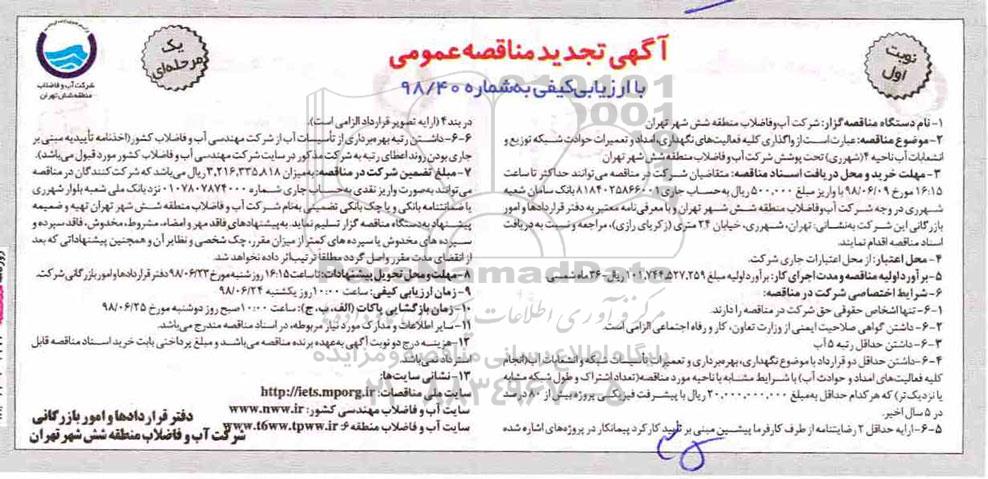 آگهی تجدید مناقصه عمومی
با ارزیابی کیفی به شماره ۹۸/۴۰
نوبت اول
یک مرحله‌ای
شرکت آب و فاضلاب
منطقه شش تهران
۱- نام دستگاه مناقصه گزار: شرکت آب و فاضلاب منطقه شش شهر تهران
۲- موضوع مناقصه: عبارت است از واگذاری کلیه فعالیت‌های نگهداری، امداد و تعمیرات حوادث شبکه توزیع و
انشعابات آب ناحیه ۴ (شهرری) تحت پوشش شرکت آب و فاضلاب منطقه شش شهر تهران
۳- مهلت خرید و محل دریافت اسناد مناقصه: متقاضیان شرکت در مناقصه می‌توانند حداکثر تا ساعت
۱۶:۱۵ مورخ ۹۸/۰۶/۰۹ با واریز مبلغ ۵۰۰,۰۰۰ ریال به حساب جاری ۸۱۸۴۰۲۵۸۶۶۰۰۱ بانک سامان شعبه
شهرری در وجه شرکت آب و فاضلاب منطقه شش شهر تهران و با معرفی نامه معتبر به دفتر قراردادها و امور
بازرگانی این شرکت به نشانی: تهران، شهرری، خیابان ۲۴ متری (زکریای رازی)، مراجعه و نسبت به دریافت
اسناد مناقصه اقدام نمایند.
۴- محل اعتبار: از محل اعتبارات جاری شرکت.
۵- برآورد اولیه مناقصه و مدت اجرای کار: برآورد اولیه مبلغ ۱۰۱,۷۴۴,۵۲۷,۲۵۹ ریال - ۳۶ ماه شمسی
۶- شرایط اختصاصی شرکت در مناقصه:
۶-۱- تنها اشخاص حقوقی حق شرکت در مناقصه را دارند.
۶-۲- داشتن گواهی صلاحیت ایمنی از وزارت تعاون، کار و رفاه اجتماعی الزامی است.
۶-۳- داشتن حداقل رتبه ۵ آب
۶-۴- داشتن حداقل دو قرارداد با موضوع نگهداری، بهره‌برداری و تعمیرات تأسیسات شبکه و انشعابات آب (انجام
کلیه فعالیت‌های امداد و حوادث آب) با شرایط مشابه با ناحیه مورد مناقصه (تعداد اشتراک و طول شبکه مشابه
یا نزدیک‌تر) که هر کدام حداقل به مبلغ ۲۰,۰۰۰,۰۰۰,۰۰۰ ریال با پیشرفت فیزیکی پروژه بیش از ۸۰ درصد
در ۵ سال اخیر.
۶-۵- ارایه حداقل ۲ رضایتنامه از طرف کارفرما پیشین مبنی بر تأیید کارکرد پیمانکار در پروژه‌های اشاره شده
در بند ۴ (ارایه تصویر قرارداد الزامی است).
۶-۶- داشتن رتبه بهره‌برداری از تأسیسات آب از شرکت مهندسی آب و فاضلاب کشور (اخذ نامه تأییدیه مبنی بر
جاری بودن روند اعطای رتبه به شرکت مذکور در سایت شرکت مهندسی آب و فاضلاب کشور مورد قبول می‌باشد).
۷- مبلغ تضمین شرکت در مناقصه: به میزان ۳,۲۱۶,۳۳۵,۸۱۸ ریال می‌باشد که شرکت کنندگان در مناقصه
می‌توانند به صورت واریز نقدی به حساب جاری شماره ۰۱۰۷۸۰۷۸۷۴۰۰۰ نزد بانک ملی شعبه بلوار شهرری
یا ضمانتنامه بانکی و یا چک بانکی تضمینی به نام شرکت آب و فاضلاب منطقه شش شهر تهران تهیه و ضمیمه
پیشنهاد به دستگاه مناقصه گزار تسلیم نماید. به پیشنهادهای فاقد مهر و امضاء، مشروط، مخدوش، فاقد سپرده و
سپرده های مخدوش یا سپرده های کمتر از میزان مقرر، چک شخصی و نظایر آن و همچنین پیشنهاداتی که بعد
از انقضای مدت مقرر واصل گردد مطلقا ترتیب اثر داده نخواهد شد.
۸- مهلت و محل تحویل پیشنهادات: تا ساعت ۱۶:۱۵ روز شنبه مورخ ۹۸/۰۶/۲۳ دفتر قراردادها و امور بازرگانی شرکت.
۹- زمان ارزیابی کیفی: ساعت ۱۰:۰۰ روز یکشنبه ۹۸/۰۶/۲۴
۱۰- زمان بازگشایی پاکات (الف، ب، ج): ساعت ۱۰:۰۰ صبح روز دوشنبه مورخ ۹۸/۰۶/۲۵
۱۱- سایر اطلاعات و مدارک مورد نیاز مربوطه، در اسناد مناقصه مندرج می‌باشد.
۱۲- هزینه درج دو نوبت آگهی به عهده برنده مناقصه می‌باشد و مبلغ پرداختی بابت خرید اسناد مناقصه قابل
استرداد نمی‌باشد.
۱۳- نشانی سایت‌ها:
سایت ملی مناقصات: http://iets.mporg.ir
سایت آب و فاضلاب مهندسی کشور: www.nww.ir
سایت آب و فاضلاب منطقه ۶: www.t6ww.tpww.ir
دفتر قراردادها و امور بازرگانی
شرکت آب و فاضلاب منطقه شش شهر تهران